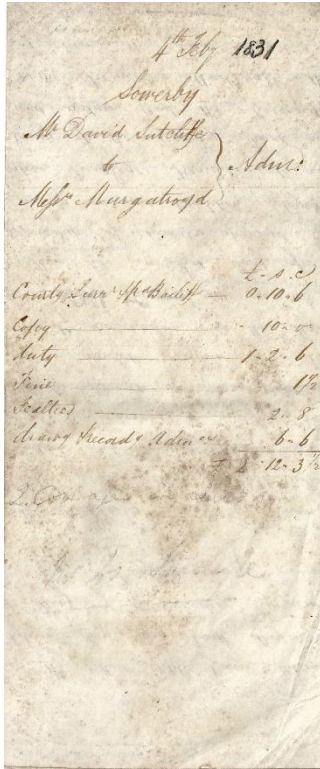 4th Feby 1831
Sowerby
Mr David Sutcliffe
to
Messrs Murgatroyd
Admn:
£ - s - d
Courtly Surrr Spl Bailiff — 0 - 10 - 6
Copy — 10 - 0
duty — 1 - 2 - 6
Fine 1½
Fealties — 2 - 8
drawg & record Admn 6 - 6
£ 2 - 12 - 3½